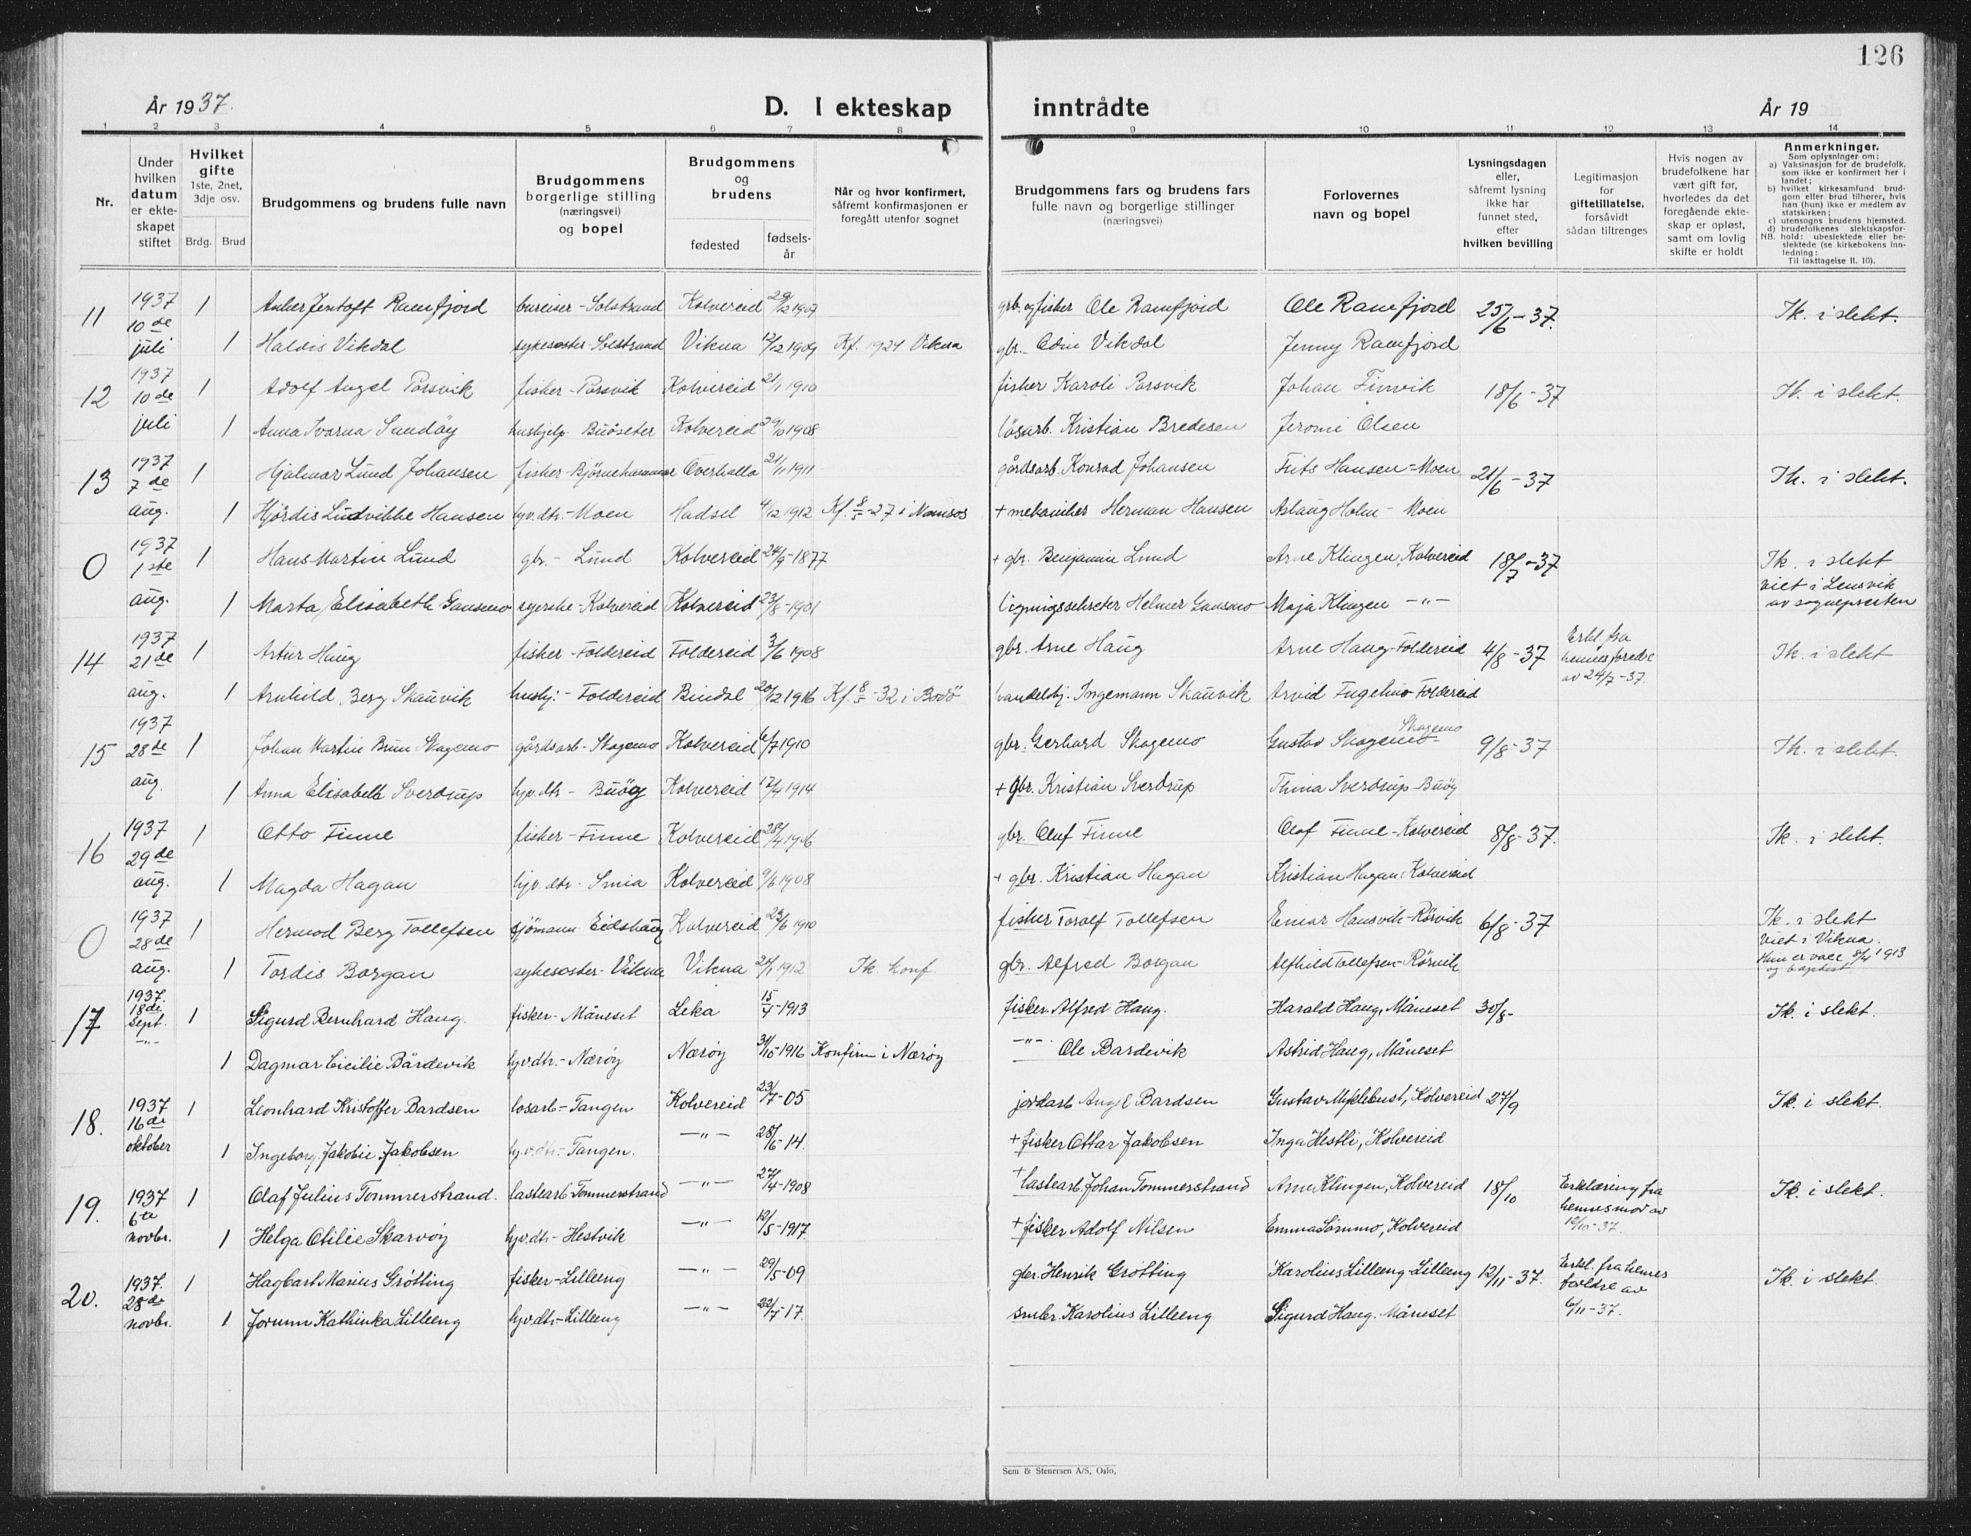 126
År 1937. D. I ekteskap inntrådte År 19
1 2 3 4 5 6 7 8 9 10 11 12 13 14
Nr.
Under hvilken datum er ekteskapet stiftet
Hvilket gifte 1ste, 2net, 3dje osv.
Brdg. Brud
Brudgommens og brudens fulle navn
Brudgommens borgerlige stilling (næringsvei) og bopel
Brudgommens og brudens
fødested fødselsår
Når og hvor konfirmert, såfremt konfirmasjonen er foregått utenfor sognet
Brudgommens fars og brudens fars fulle navn og borgerlige stillinger (næringsvei)
Forlovernes navn og bopel
Lysningsdagen eller, såfremt lysning ikke har funnet sted, efter hvilken bevilling
Legitimasjon for giftetillatelse, forsåvidt sådan tiltrenges
Hvis nogen av brudefolkene har vært gift før, hvorledes da det foregående ekteskap er opløst, samt om lovlig skifte er holdt
Anmerkninger.
Som oplysninger om:
a) Vaksinasjon for de brudefolk, som ikke er konfirmert her i landet;
b) hvilket kirkesamfund brudgom eller brud tilhører, hvis han (hun) ikke er medlem av statskirken;
c) utensogns brudens hjemsted.
d) brudefolkenes slektskapsforhold: ubeslektede eller beslektede (se kirkebokens innledning:
NB.
Til iakttagelse II. 10).
11 1937 10de juli 1 Anker Jentoft Ramfjord bureiser - Solstrand Kolvereid 29/12 1907 grb. og fisker Ole Ramfjord Ole Ramfjord 25/6-37. Ik. i slekt.
1 Haldis Vikdal sykesøster - Solstrand Vikna 12/12 1909 Kf. 1924 Vikna gbr. Odin Vikdal Jenny Ramfjord
12 1937 10de juli 1 Adolf Angel Parsvik fisker - Parsvik Kolvereid 21/1 1910 fisker Karoli Parsvik Johan Finvik 18/6-37 Ik. i slekt.
1 Anna Ivarna Sundöy hushjelp. Buöseter Kolvereid 29/10 1908 løsarb. Kristian Bredesen Jeromi Olsen
13 1937 7de aug. 1 Hjalmar Lund Johansen fisker - Bjørnehammar Overhalla 21/11 1911 gårdsarb. Konrad Johansen Frits Hansen - Moen 21/6-37 Ik. i slekt.
1 Hjördis Ludvikke Hansen hjv.dtr. - Moen Hadsel 4/12 1912 Kf. 8/5-27 i Namsos + mekaniker Herman Hansen Aslaug Holm - Moen
0 1937 1ste aug. 1 Hans Martin Lund gbr. - Lund Kolvereid 24/9-1877 + gbr. Benjamin Lund Arne Klingen, Kolvereid 18/7-37 Ik. i slekt
viet i Lensvik
av sognepresten
1 Marta Elisabeth Gansmo syerske - Kolvereid Kolvereid 23/8-1901 ligningssekretær Helmer Gansmo Maja Klingen -"-
14 1937 21de aug. 1 Artur Haug fisker - Foldereid Foldereid 3/6 1908 gbr. Arne Haug Arne Haug - Foldereid 4/8-37 Erkl. fra
hennes foreldre
av 24/7-37. Ik. i slekt
1 Arnhild Berg Skauvik hushj. - Foldereid Bindal 20/12 1916 Kf. 8/5-32 i Bodö handelsbj. Ingemann Skauvik Arvid Fugelmo Foldereid
15 1937 28de aug. 1 Johan Martin Brun Skagemo gårdsarb - Skagemo Kolvereid 6/7 1910 gbr. Gerhard Skagemo Gustav Skagemo Skagemo 9/8-37 Ik. i slekt.
1 Anna Elisabeth Sverdrup hjv.dtr - Buöy Kolvereid 12/4 1914 + Gbr. Kristian Sverdrup Thina Sverdrup - Buöy
16 1937 29de aug. 1 Otto Finne fisker - Finne Kolvereid 28/4 1906 gbr. Oluf Finne Olaf Finne - Kolvereid 8/8-37. Ik. i slekt.
1 Magda Hagan hjv.dtr. Smia Kolvereid 9/6 1908 + gbr. Kristian Hagan Kristian Hagan, Kolvereid
0 1937 28de aug. 1 Hermod Berg Tollefsen sjömann Eidshaug Kolvereid 23/6 1910 fisker Toralf Tollefsen Einar Hansvik - Rörvik 6/8-37 Ik. i slekt
viet i Vikna.
Hun er vacc 8/4 1913
og baptist
1 Tordis Borgan sykesøster - Vikna Vikna 24/1 1912 Ik konf. gbr. Alfred Borgan Alfhild Tollefsen - Rörvik
17 1937. 18de sept. -"- 1 Sigurd Bernhard Haug. fisker - Måneset Leka 15/4-1913 fisker. Alfred Haug. Harald Haug, Måneset 30/8- Ik. i slekt.
1 Dagmar Cicilie Bårdevik hjv.dtr. - Nærøy Nærøy 31/10-1916 Konfirm i Nærøy -"- Ole Bardevik Astrid Haug, Måneset
18. 1937 16de oktober 1 Leonhard Kristoffer Bardsen løsarb - Tangen Kolvereid 23/7-05 jordarb Angel Bardsen Gustav Myklebust, Kolvereid 27/9 Ik. i slekt.
1 Ingeborg Jakobie Jakobsen hjv.dtr. - Tangen. -"- 28/6-14. + fisker Ottar Jakobsen Inga Hestli, Kolvereid
19. 1937 6te novbr. 1 Olaf Julius Tommerstrand. lastearb Tommerstrand -"- 27/4-1908 + lastearb. Johan Tommerstrand Arne Klingen, Kolvereid 18/10 Erklæring fra
hennes mor av
12/10-37. Ik. i slekt.
1 Helga Otilie Skarvøy hjv.dtr - Hestvik -"- 12/5-1917 + fisker Adolf Nilsen Emma Sømmo, Kolvereid
20. 1937. 28de novbr. 1 Hagbart Marius Grøtting fisker - Lilleeng -"- 29/5-09 gbr. Henrik Grøtting Karolius Lilleeng - Lilleeng 12/11-37. Erkl. fra hennes
foreldre av
6/11-37. Ik. i slekt.
1 Jorunn Kathinka Lilleeng hjv.dtr - Lilleeng -"- 22/7-17. smbr. Karolius Lilleeng Sigurd Haug. Måneset
Sem & Stenersen A/S, Oslo,